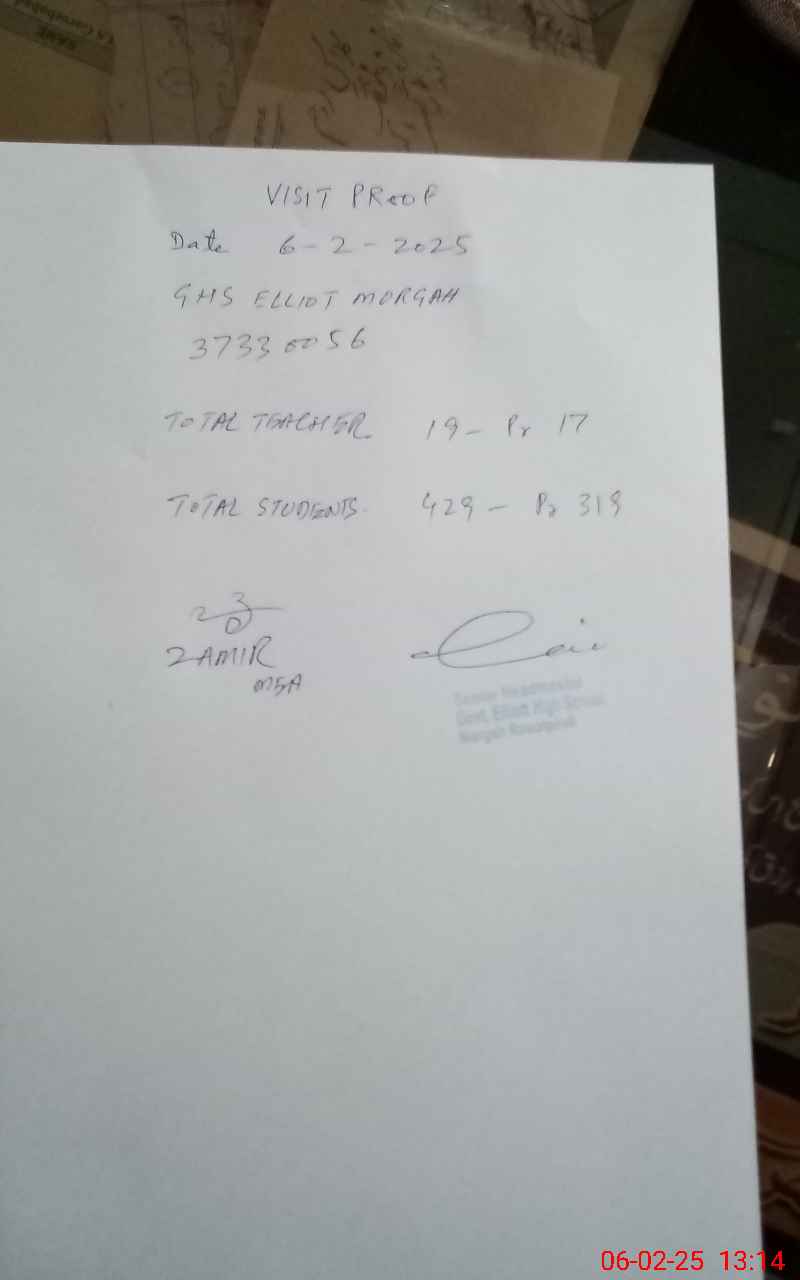 VISIT PROOF
Date 6-2-2025
GHS ELLIOT MORGAH
37330056
TOTAL TEACHER 19 - Pr 17
TOTAL STUDENTS. 429 - Pr 319
ZAMIR
MEA
Senior Headmaster
Govt. Elliott High School
Morgah Rawalpindi
06-02-25 13:14